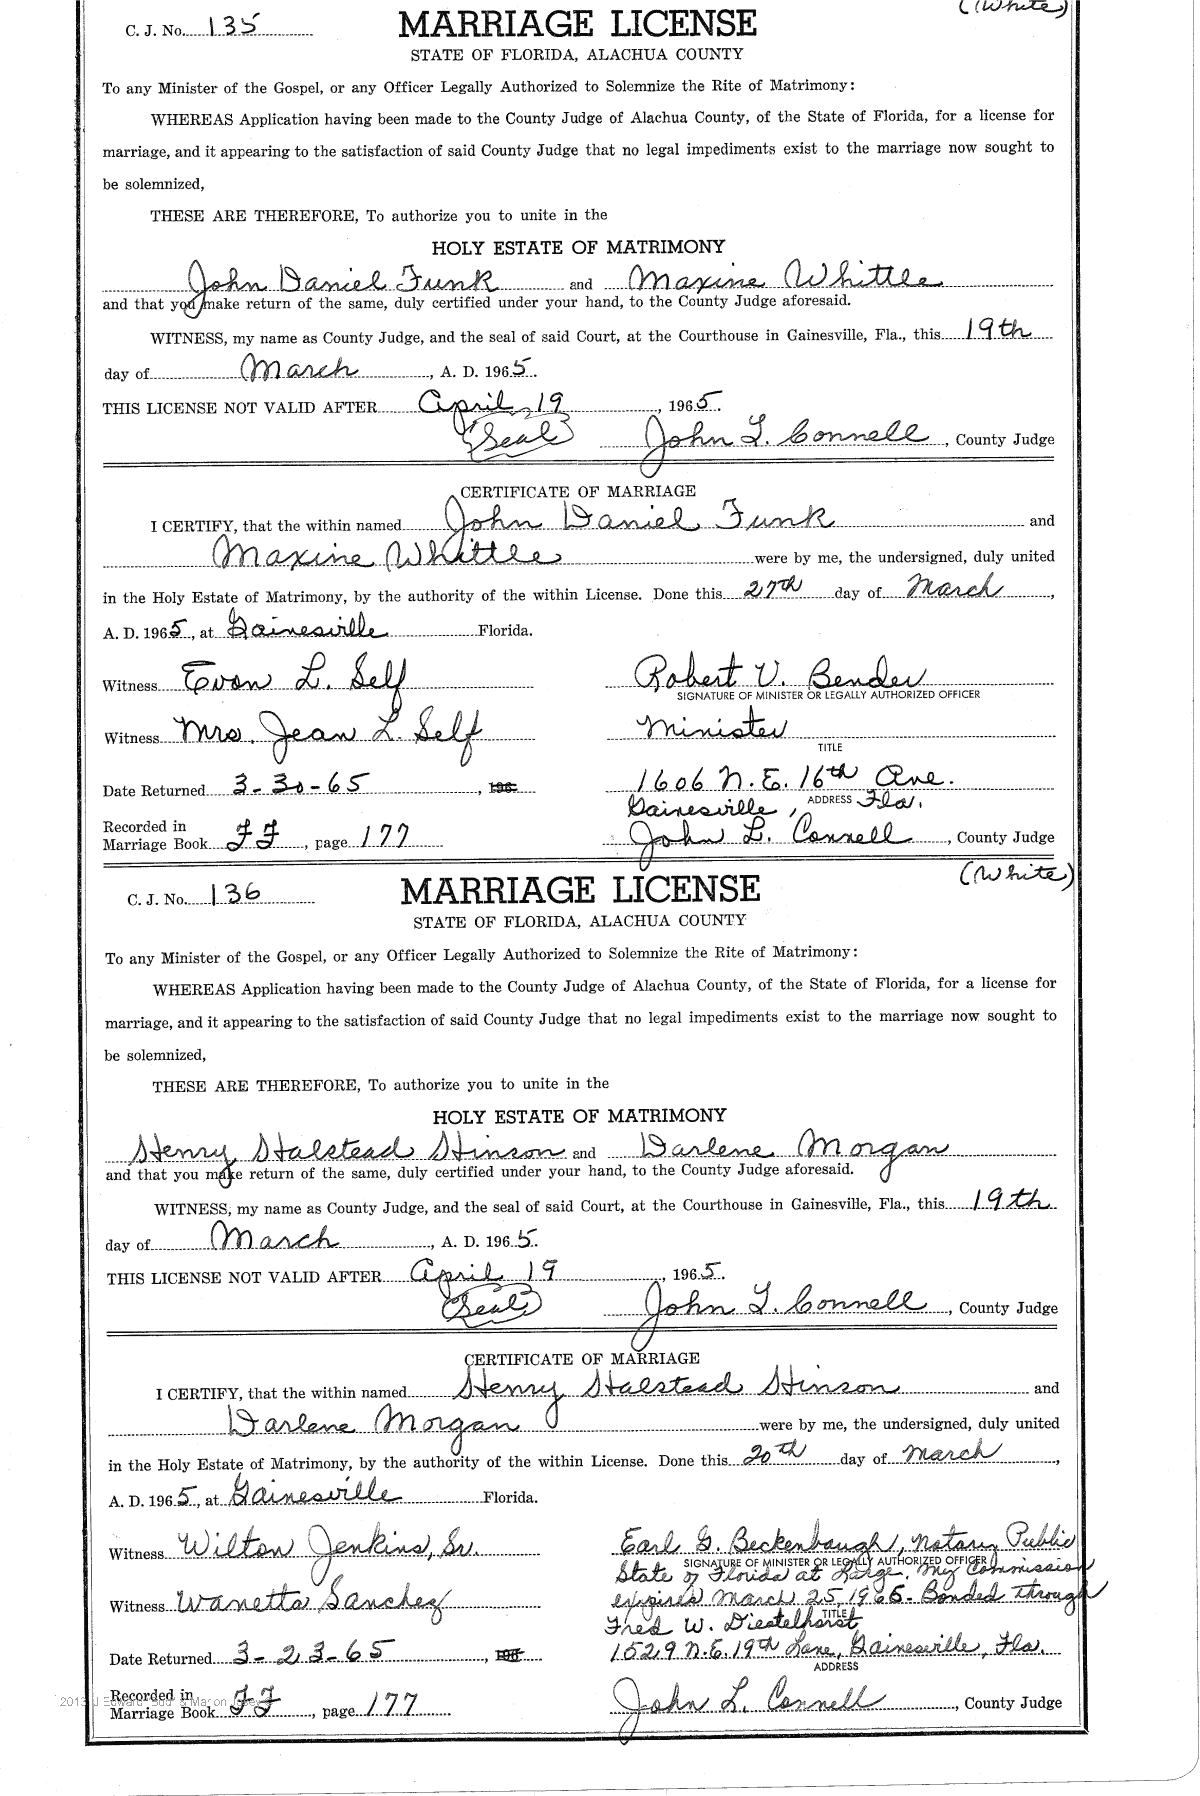 (White)
C. J. No. 135 MARRIAGE LICENSE
STATE OF FLORIDA, ALACHUA COUNTY
To any Minister of the Gospel, or any Officer Legally Authorized to Solemnize the Rite of Matrimony:
WHEREAS Application having been made to the County Judge of Alachua County, of the State of Florida, for a license for
marriage, and it appearing to the satisfaction of said County Judge that no legal impediments exist to the marriage now sought to
be solemnized,
THESE ARE THEREFORE, To authorize you to unite in the
HOLY ESTATE OF MATRIMONY
John Daniel Funk and Maxine Whittle
and that you make return of the same, duly certified under your hand, to the County Judge aforesaid.
WITNESS, my name as County Judge, and the seal of said Court, at the Courthouse in Gainesville, Fla., this 19th
day of March, A. D. 1965.
THIS LICENSE NOT VALID AFTER April 19, 1965.
(Seal) John L. Connell, County Judge
CERTIFICATE OF MARRIAGE
I CERTIFY, that the within named John Daniel Funk and
Maxine Whittle were by me, the undersigned, duly united
in the Holy Estate of Matrimony, by the authority of the within License. Done this 27th day of March,
A. D. 1965, at Gainesville Florida.
Witness Evon L. Self Robert V. Bender
SIGNATURE OF MINISTER OR LEGALLY AUTHORIZED OFFICER
Witness Mrs. Jean L. Self Minister
TITLE
Date Returned 3-30-65, 196 1606 N.E. 16th Ave.
Gainesville, ADDRESS Fla.
Recorded in
Marriage Book FF, page 177 John L. Connell, County Judge
(White)
C. J. No. 136 MARRIAGE LICENSE
STATE OF FLORIDA, ALACHUA COUNTY
To any Minister of the Gospel, or any Officer Legally Authorized to Solemnize the Rite of Matrimony:
WHEREAS Application having been made to the County Judge of Alachua County, of the State of Florida, for a license for
marriage, and it appearing to the satisfaction of said County Judge that no legal impediments exist to the marriage now sought to
be solemnized,
THESE ARE THEREFORE, To authorize you to unite in the
HOLY ESTATE OF MATRIMONY
Henry Halstead Hinson and Darlene Morgan
and that you make return of the same, duly certified under your hand, to the County Judge aforesaid.
WITNESS, my name as County Judge, and the seal of said Court, at the Courthouse in Gainesville, Fla., this 19th
day of March, A. D. 1965.
THIS LICENSE NOT VALID AFTER April 19, 1965.
(Seal) John L. Connell, County Judge
CERTIFICATE OF MARRIAGE
I CERTIFY, that the within named Henry Halstead Hinson and
Darlene Morgan were by me, the undersigned, duly united
in the Holy Estate of Matrimony, by the authority of the within License. Done this 20th day of March,
A. D. 1965, at Gainesville Florida.
Witness Wilton Jenkins, Sr. Earl G. Beckenbaugh, Notary Public
SIGNATURE OF MINISTER OR LEGALLY AUTHORIZED OFFICER
State of Florida at Large. My Commission
Witness Wanetta Sanchez expires March 25, 1965. Bonded through
Fred W. Diestelhorst TITLE
Date Returned 3-23-65, 196 1529 N.E. 19th Lane, Gainesville, Fla.
ADDRESS
Recorded in
Marriage Book FF, page 177 John L. Connell, County Judge